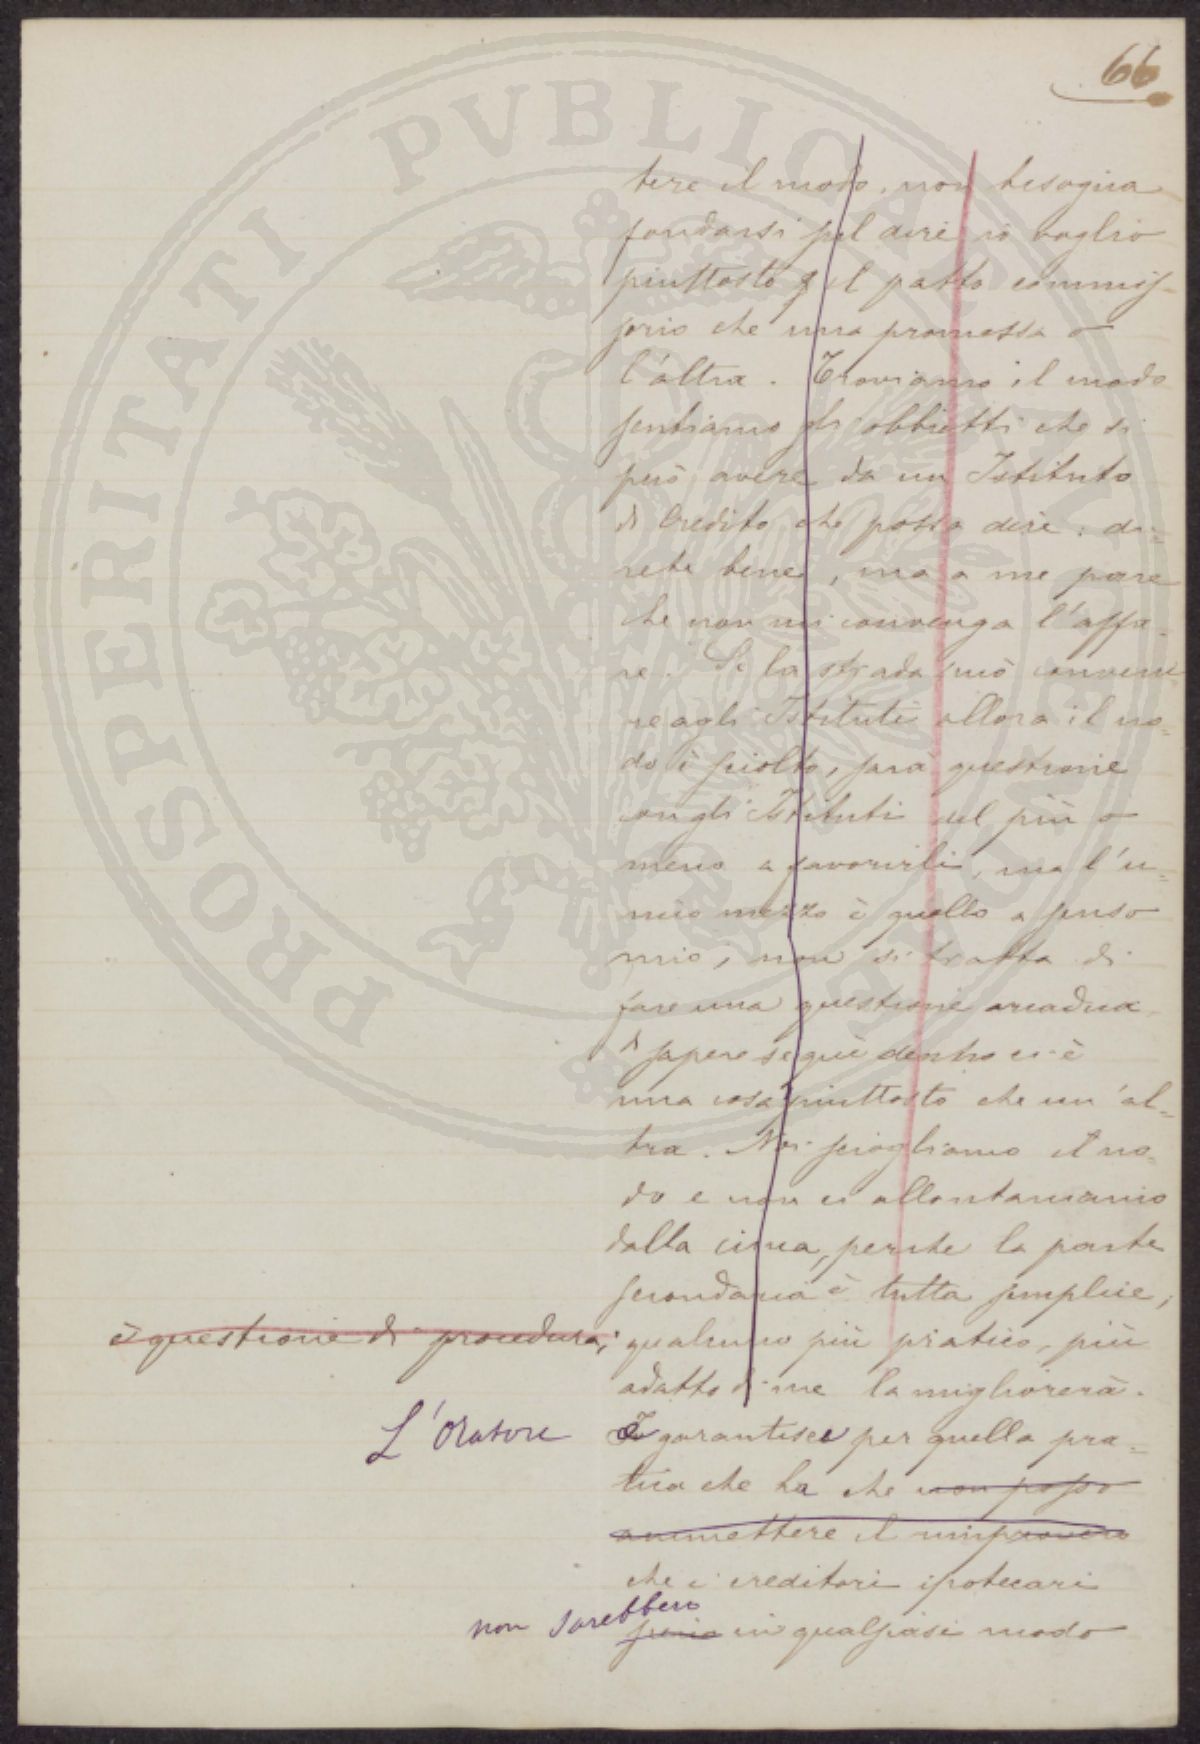 66
tere il modo, non bisogna
fondarsi sul dire io voglio
piuttosto il patto commis-
sorio che una promessa o
l'altra. Troviamo il modo
sentiamo gli obbietti che si
può avere da un Istituto
di Credito che possa dire: di-
rete bene, ma a me pare
che non mi convenga l'affa-
re. Se la strada può conveni-
re agli Istituti allora il no-
do è sciolto, sarà questione
cogli Istituti del più o
meno a favorirli, ma l'u-
nico mezzo è quello a senso
mio, non si tratta di
fare una questione arcadica
di sapere se qui dentro ci è
una cosa piuttosto che un'al-
tra. Noi sciogliamo il no-
do e non ci allontaniamo
dalla cima, perchè la parte
secondaria è tutta semplice,
è questione di procedura; qualcuno più pratico, più
adatto di me la migliorerà.
L'Oratore garantisce per quella pra-
tica che ha che non posso
ammettere il rimprovero
che i creditori ipotecari
non sarebbero in qualsiasi modo